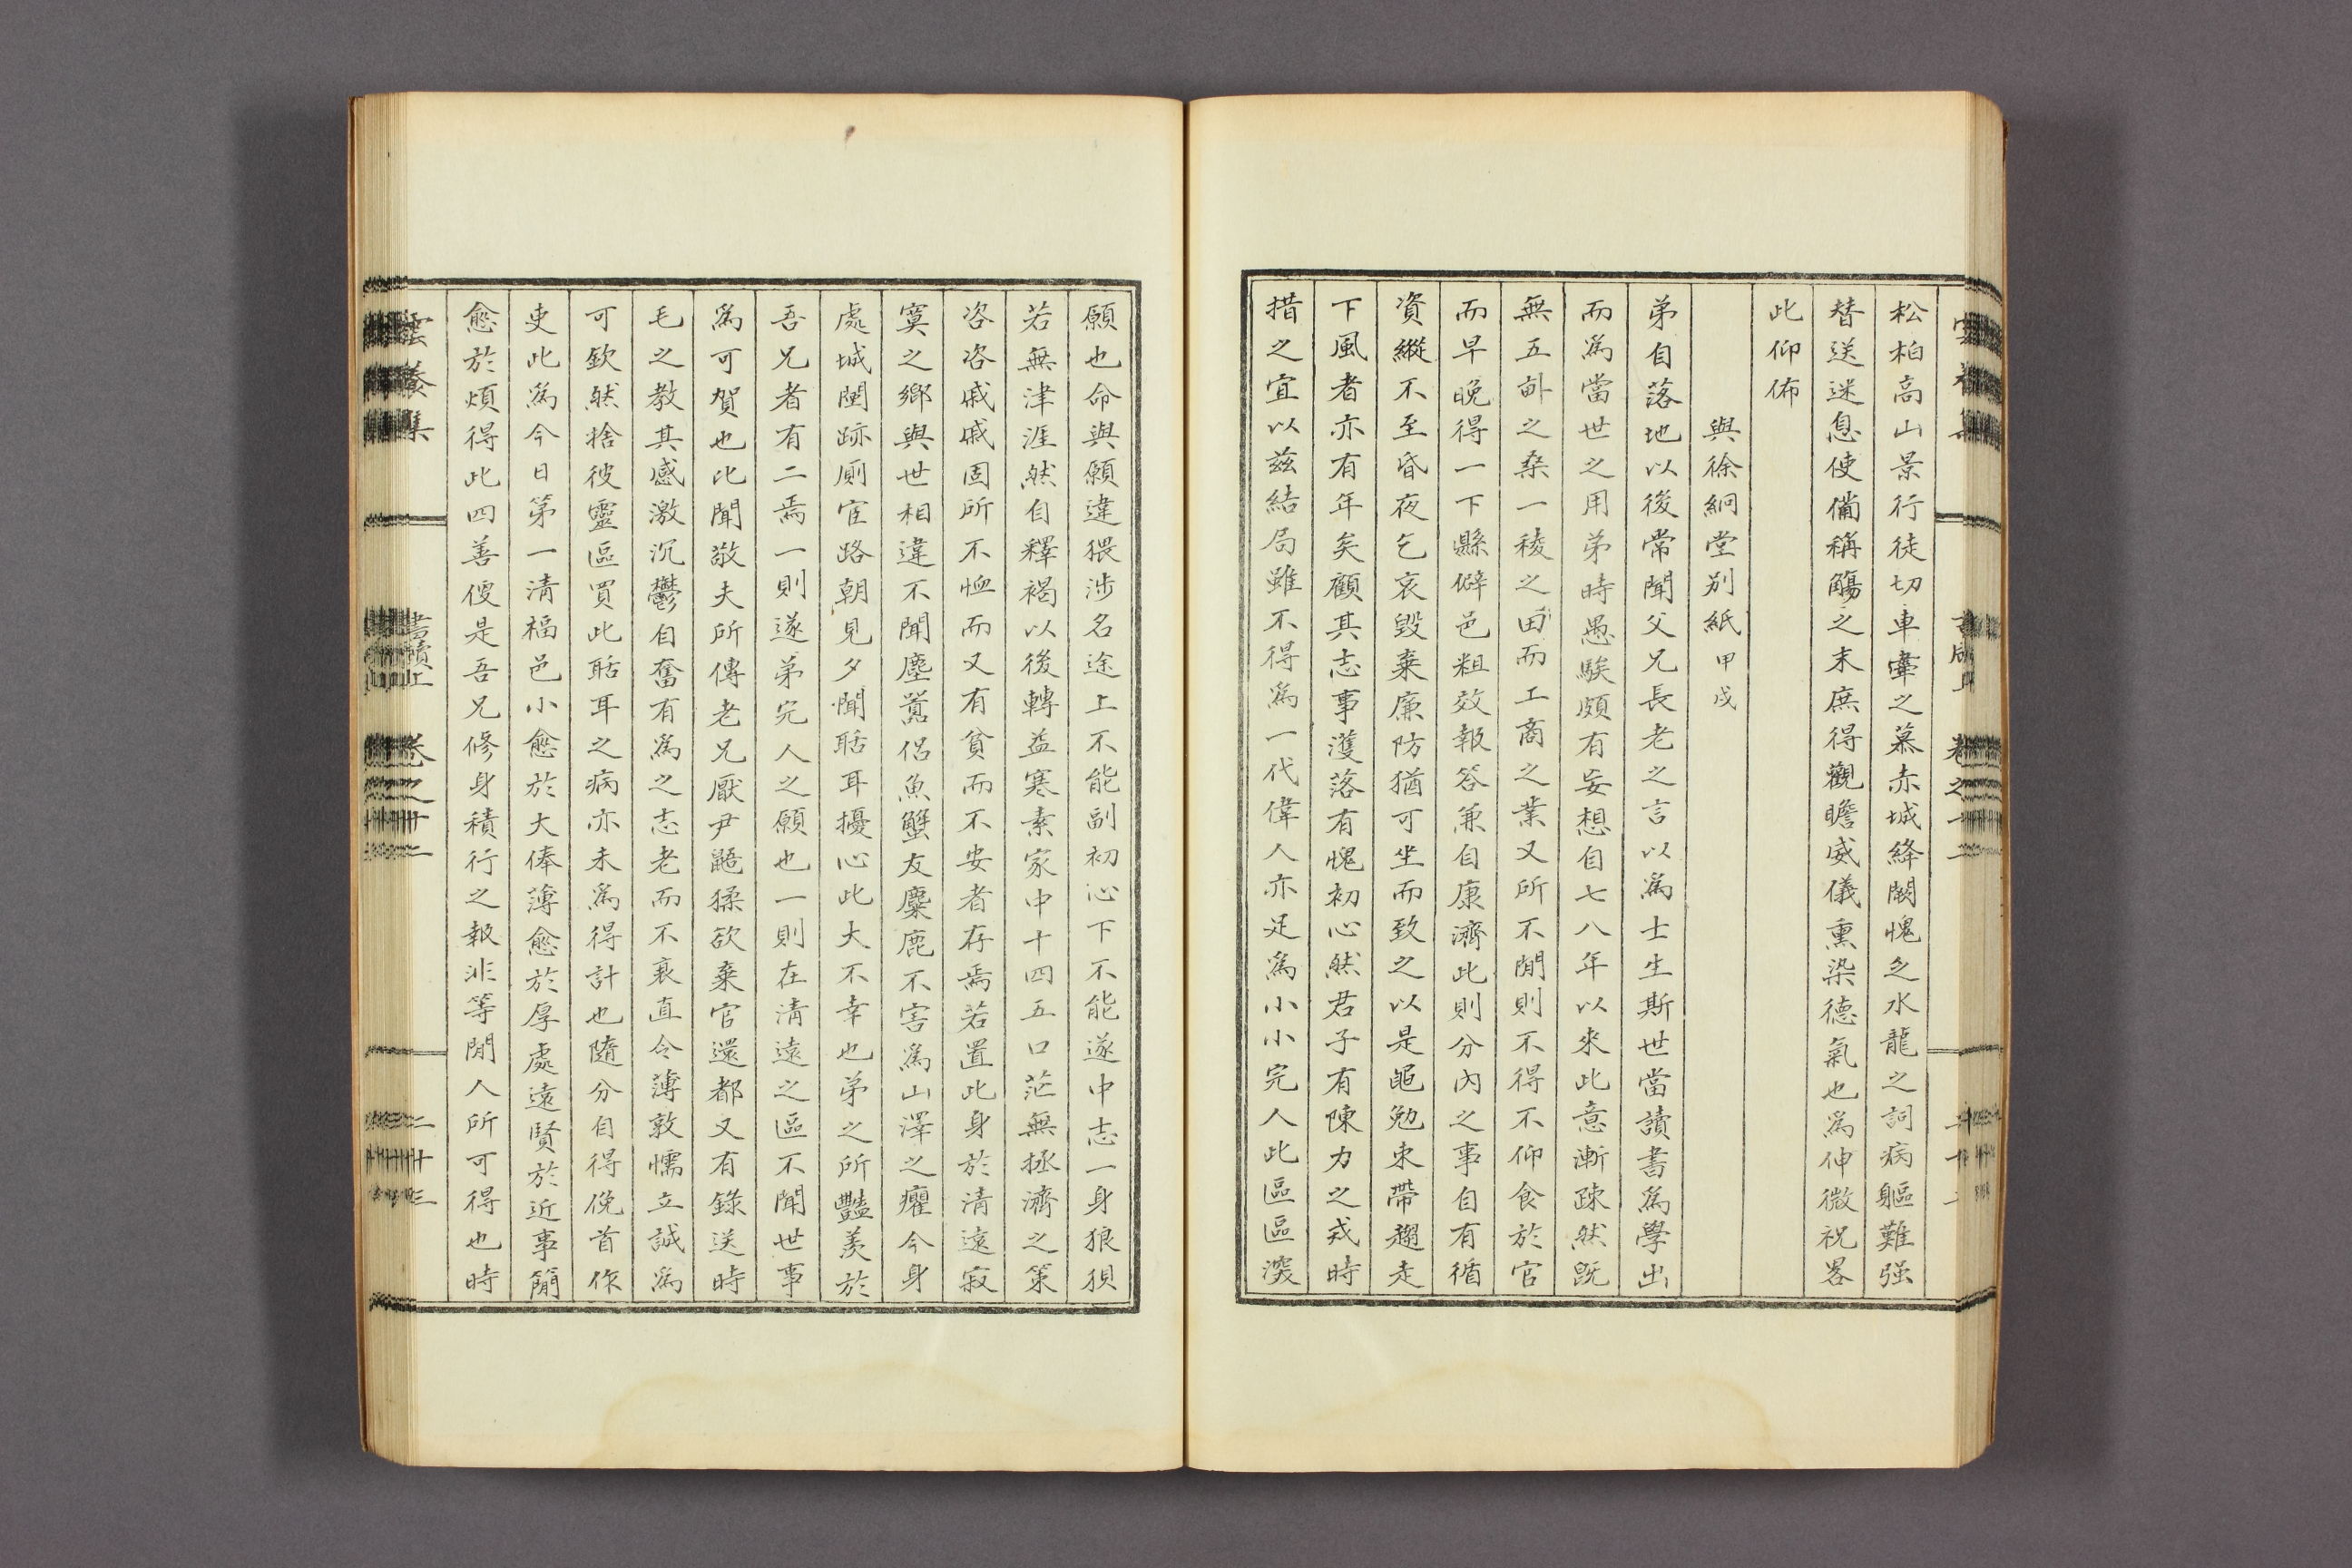 松柏高山景行徒切車舝之慕赤城絳闕愧乏水龍之詞病軀難强
替送迷息使備稱觴之末庶得觀瞻威儀熏染德氣也爲伸微祝畧
此仰佈
與徐絅堂别紙 甲戌
弟自落地以後常聞父兄長老之言以爲士生斯世當讀書爲學出
而爲當世之用弟時愚騃頗有妄想自七八年以來此意漸疎然旣
無五畝之桑一稜之田而工商之業又所不閒則不得不仰食於官
而早晩得一下縣僻邑粗效報答兼自康濟此則分內之事自有循
資縱不至昏夜乞哀毀棄廉防猶可坐而致之以是黽勉束帶趨走
下風者亦有年矣顧其志事濩落有愧初心然君子有陳力之戎時
措之宜以兹結局雖不得爲一代偉人亦足爲小小完人此區區深
願也命與願違猥涉名途上不能副初心下不能遂中志一身狼狽
若無津涯然自釋褐以後轉益寒素家中十四五口茫無拯濟之策
咨咨戚戚固所不恤而又有貧而不安者存焉若置此身於淸遠寂
寞之鄕與世相違不聞塵囂侶魚蟹友麋鹿不害爲山澤之癯今身
處城闉跡厠宦路朝見夕聞聒耳擾心此大不幸也弟之所豔羨於
吾兄者有二焉一則遂弟完人之願也一則在淸遠之區不聞世事
爲可賀也比聞敬夫所傳老兄厭尹鼯猱欲棄官還都又有錄送時
毛之教其感激沉鬱自奮有爲之志老而不衰直令薄敦懦立誠爲
可欽然捨彼靈區買此聒耳之病亦未爲得計也隨分自得俛首作
吏此爲今日第一淸福邑小愈於大俸薄愈於厚處遠賢於近事簡
愈於煩得此四善便是吾兄修身積行之報非等閒人所可得也時
雲養集
書牘上
卷之十二
二十三